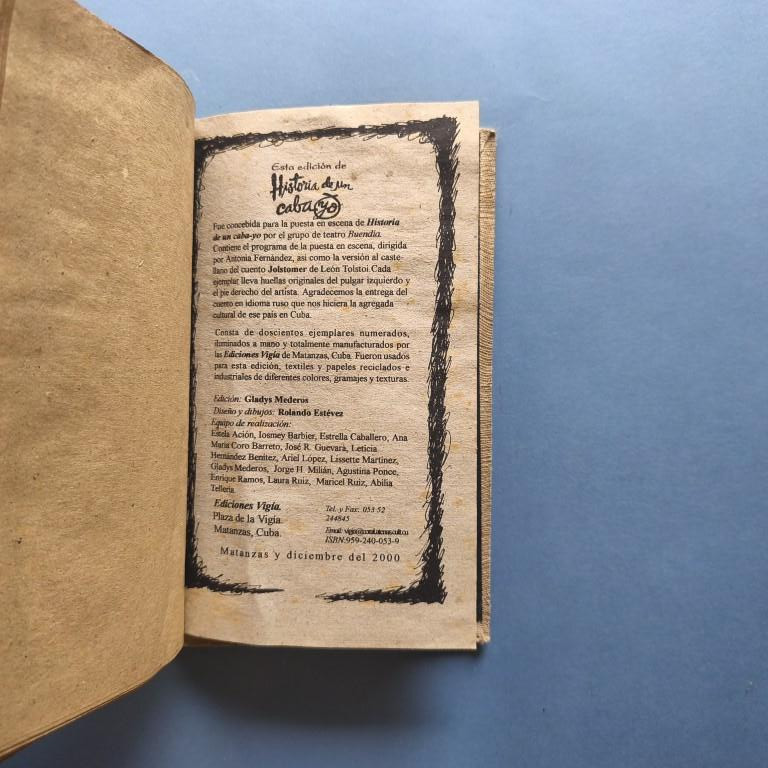 Esta edición de
Historia de un
caba-yo
Fue concebida para la puesta en escena de Historia
de un caba-yo por el grupo de teatro Buendía.
Contiene el programa de la puesta en escena, dirigida
por Antonia Fernández, así como la versión al caste-
llano del cuento Jolstomer de León Tolstoi Cada
ejemplar lleva huellas originales del pulgar izquierdo y
el pie derecho del artista. Agradecemos la entrega del
cuento en idioma ruso que nos hiciera la agregada
cultural de ese país en Cuba.
Consta de doscientos ejemplares numerados,
iluminados a mano y totalmente manufacturados por
las Ediciones Vigía de Matanzas, Cuba. Fueron usados
para esta edición, textiles y papeles reciclados e
industriales de diferentes colores, gramajes y texturas.
Edición: Gladys Mederos
Diseño y dibujos: Rolando Estévez
Equipo de realización:
Estela Ación, Iosmey Barbier, Estrella Caballero, Ana
María Coro Barreto, José R. Guevara, Leticia
Hernández Benítez, Ariel López, Lissette Martínez,
Gladys Mederos, Jorge H. Milián, Agustina Ponce,
Enrique Ramos, Laura Ruiz, Maricel Ruiz, Abilia
Tellería.
Ediciones Vigía.
Plaza de la Vigía.
Matanzas, Cuba.
Tel. y Fax: 053 52
244845
Email:
ISBN:959-240-053-9
Matanzas y diciembre del 2000